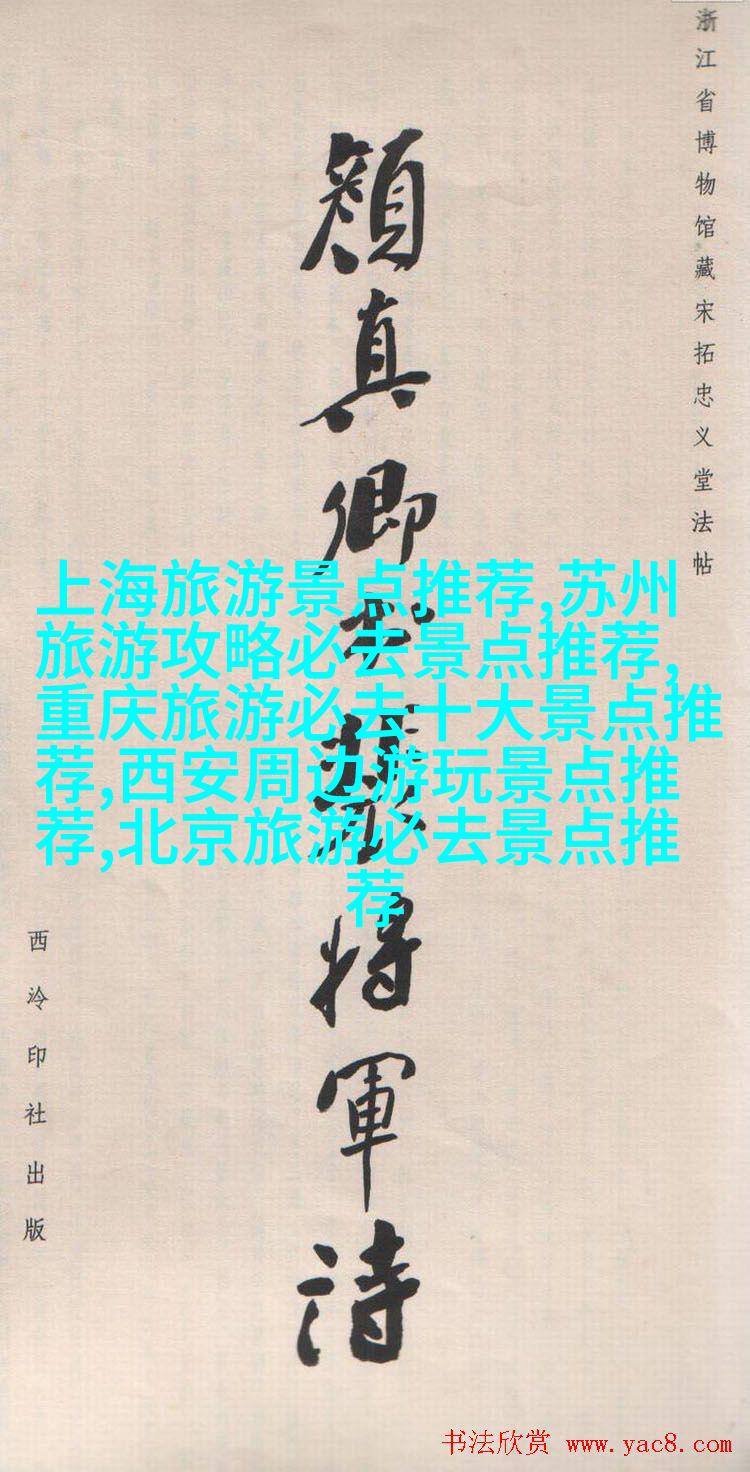 浙江省博物馆藏宋拓忠义堂法帖
顏真卿裴将軍詩
西泠印社出版
上海旅游景点推荐,苏州
旅游攻略必去景点推荐,
重庆旅游必去十大景点推
荐,西安周边游玩景点推
荐,北京旅游必去景点推
荐
书法欣赏 www.yac8.com